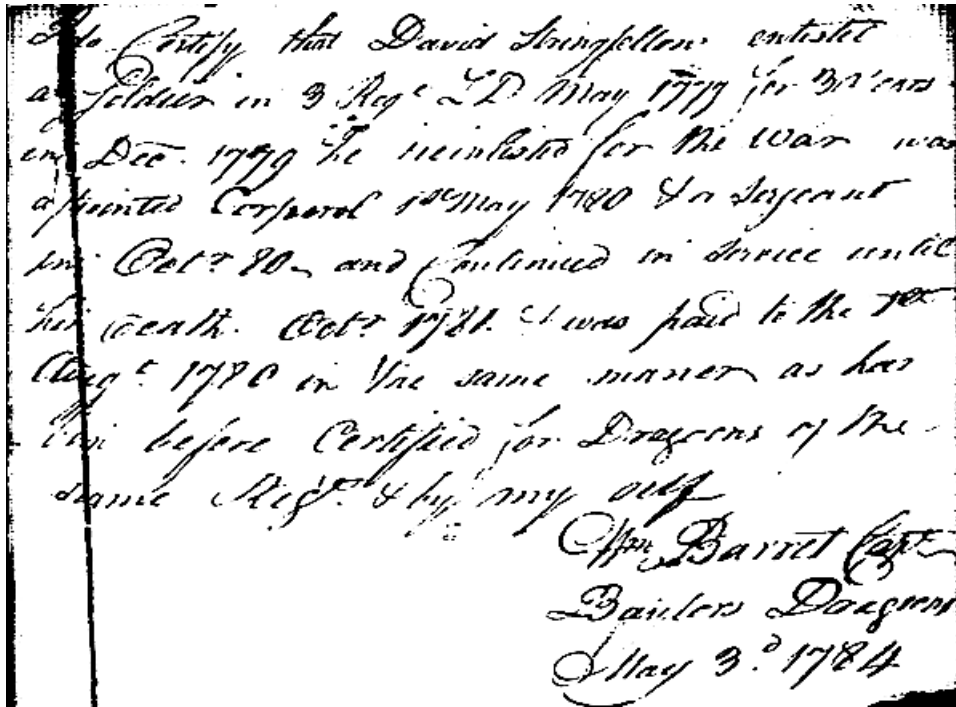 I do Certify that David Stringfellow enlisted
a Soldier in 3 Regt L D May 1777 for 3 Years
in Decr. 1779 he reinlisted for the War was
apointed Corporal 1st May 1780 & a Serjeant
in Octr 80 and Continued in Service until
his death. Octr 1781. & was paid to the 1st
Augt 1780 in the same maner as has
bin before Certified for Dragoons of the
same Regt & by my self
Wm Barret Capt
Baylors Dragoons
May 3d 1784